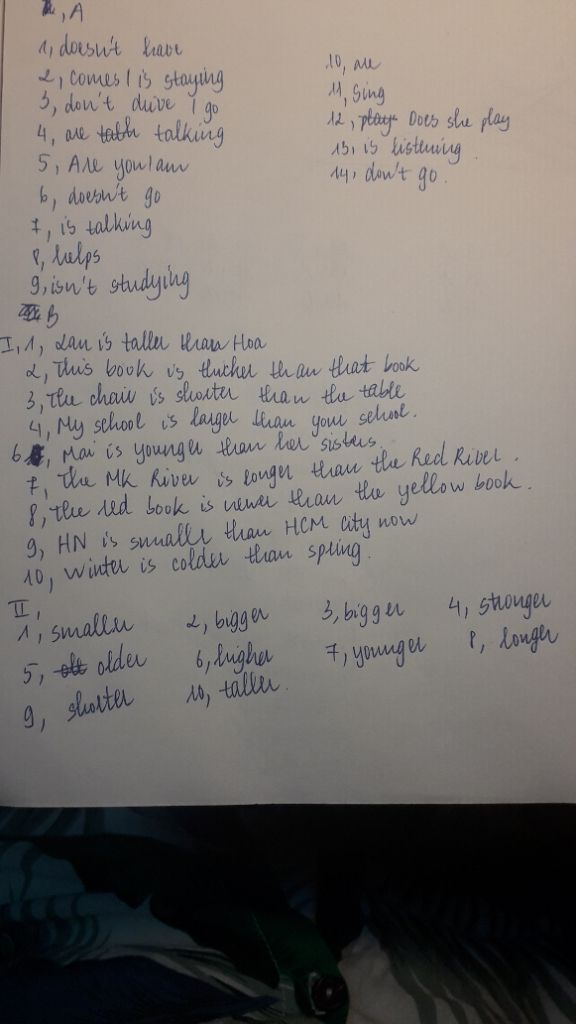 , A
1, doesn't have
2, comes / is staying
3, don't drive / go
4, are talking
5, Are you / am
6, doesn't go
7, is talking
8, helps
9, isn't studying
10, are
11, Sing
12, play Does she play
13, is listening
14, don't go.
B
I, 1, Lan is taller than Hoa
2, This book is thicker than that book
3, The chair is shorter than the table
4, My school is larger than your school.
6, Mai is younger than her sisters.
7, The MK River is longer than the Red River.
8, The red book is newer than the yellow book.
9, HN is smaller than HCM city now
10, Winter is colder than spring.
II,
1, smaller 2, bigger 3, bigger 4, stronger
5, older 6, higher 7, younger 8, longer
9, shorter 10, taller.